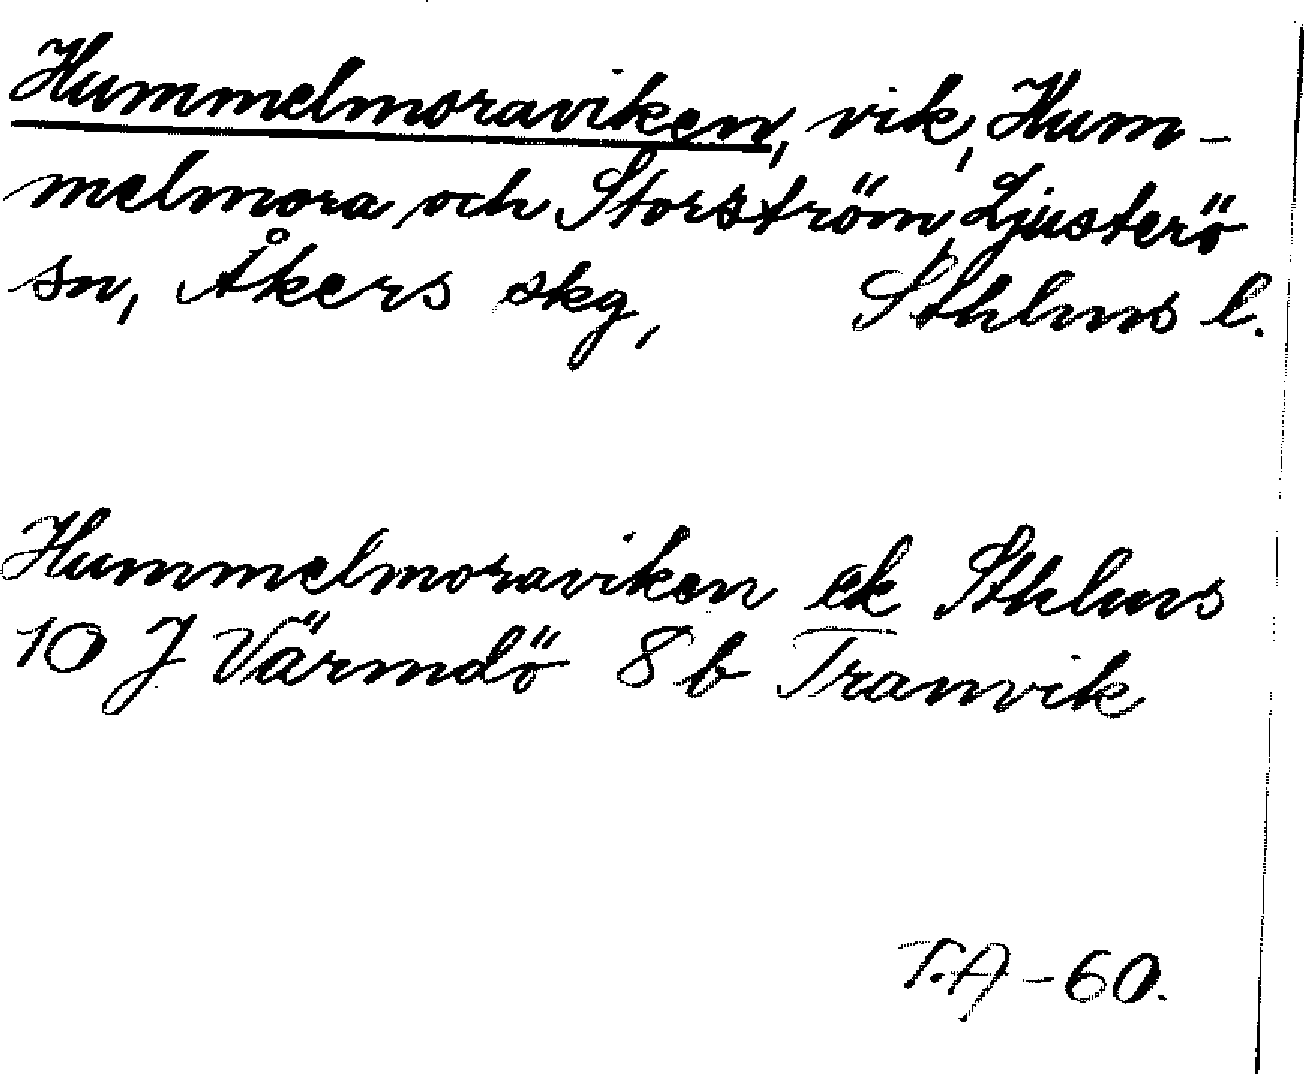 Hummelmoraviken, vik, Hum-
melmora och Storström, Ljusterö
sn, Åkers skg, Sthlms l.
Hummelmoraviken ek Sthlms
10 J Värmdö 8 b Tranvik
T.A - 60.